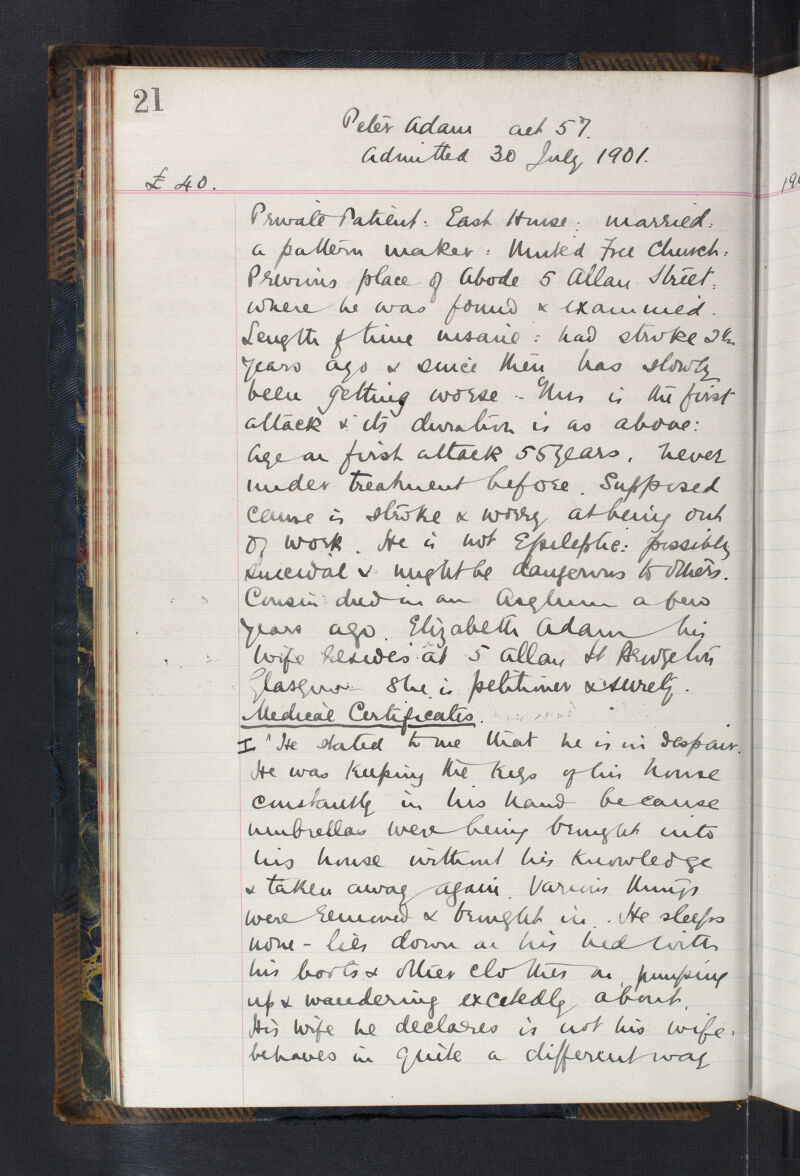 21
Peter Adam aet 57.
Admitted 30 July 1901.
£ 40.
190
Private Patient: East House: married:
a pattern maker: United Free Church:
Previous place of Abode 5 Allan Street:
where he was found & examined.
Length of time insane: had stroke 2½
years ago & since then has slowly
been getting worse - This is the first
attack & its duration is as above:
age on first attack 55 years. never
under treatment before. Supposed
cause is stroke & worry at being out
of work. He is not Epileptic: possibly
suicidal & might be dangerous to others.
Cousin died in an Asylum a few
years ago. Elizabeth Adam his
wife resides at 5 Allan St Bridgeton
Glasgow She is petitioner & surety.
Medical Certificates.
I "He stated to me that he is in despair.
He was keeping the keys of his house
constantly in his hand because
umbrellas were being brought into
his house without his knowledge
& taken away again. Various things
were removed & brought in. He sleeps
none - lies down on his bed with
his boots & other clothes on, jumping
up & wandering excitedly about.
His wife he declares is not his wife.
behaves in quite a different way